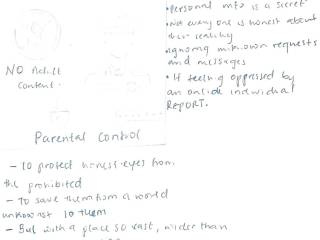 NO Adult
Content.
Parental Control
- To protect honest-eyes from
the prohibited
- To save them from a world
unknownst to them
- But with a place so vast, wider than
• Personal info is a secret
• Not everyone is honest about
their reality
• Ignoring unknown requests
and messages
• If feeling oppressed by
an online individual
REPORT.